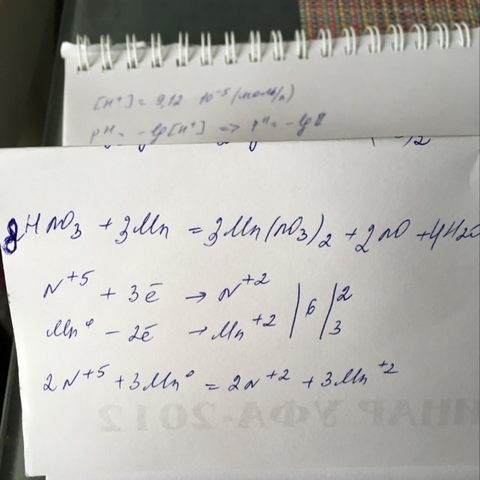 [H⁺] = 9,12 10⁻⁵ (моль/л)
pH = -lg[H⁺] => pH = -lg
8HNO₃ + 3Mn = 3Mn(NO₃)₂ + 2NO + 4H₂O
N⁺⁵ + 3ē → N⁺² | 6 | 2
Mn⁰ - 2ē → Mn⁺² | 3
2N⁺⁵ + 3Mn⁰ = 2N⁺² + 3Mn⁺²
ИНАР УФА-2012